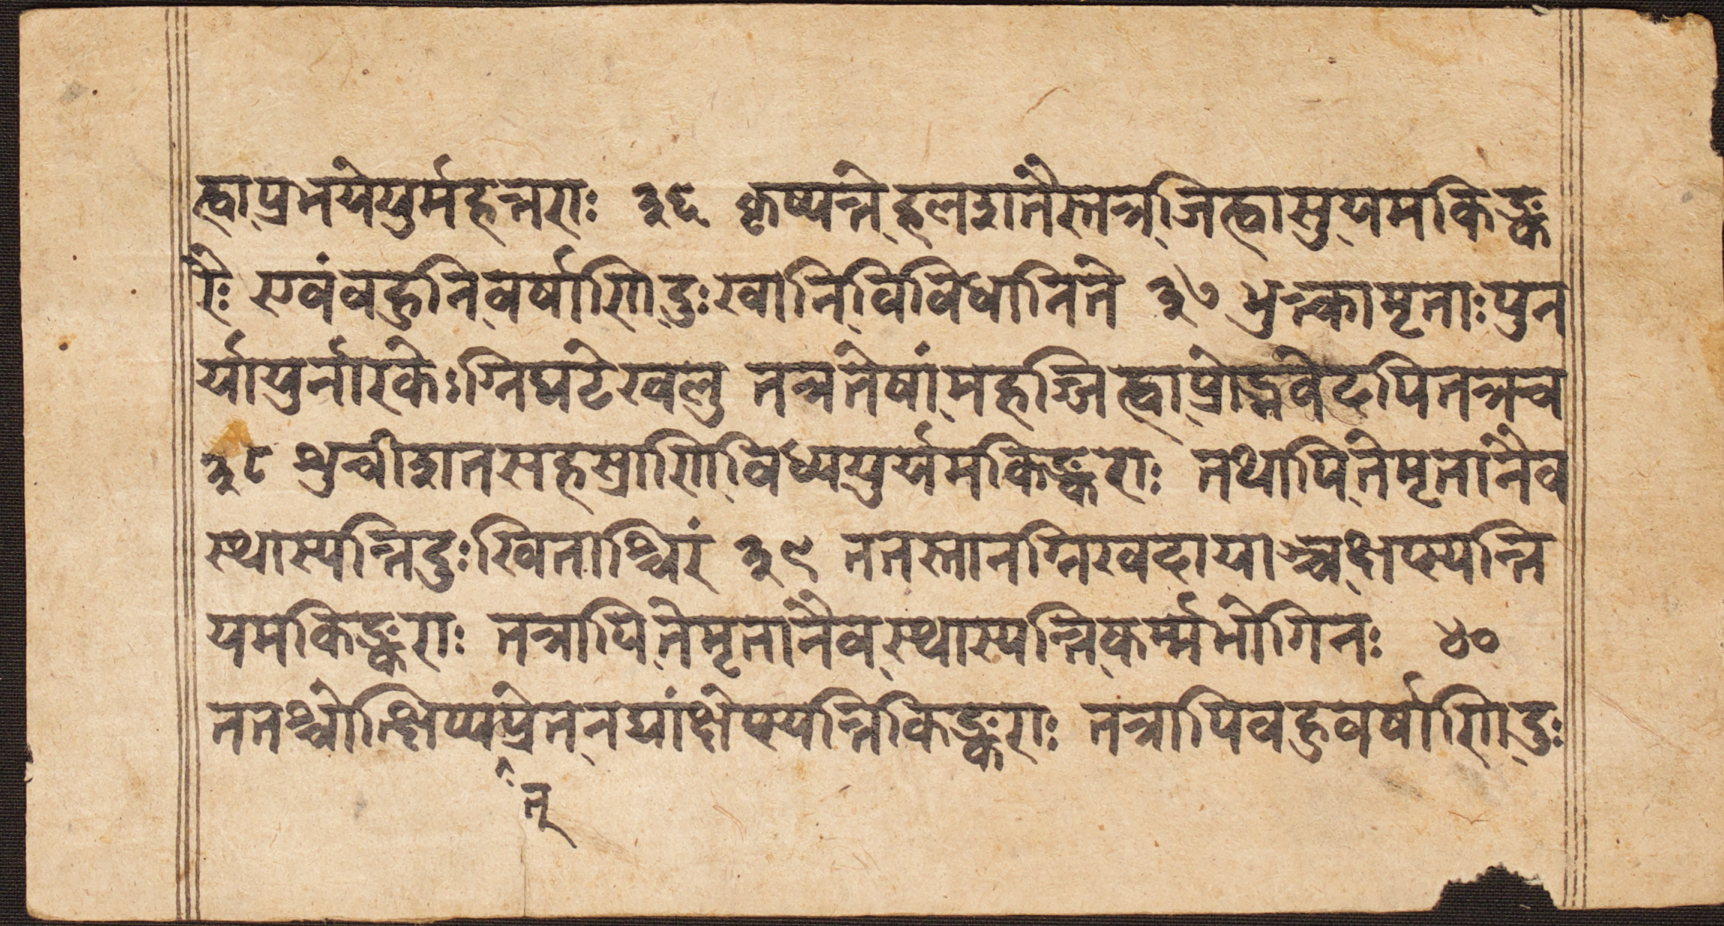 त्वाप्रभयेयुर्महन्नराः ३६ कृष्यन्ते हलशतैस्तत्र जित्वासु यमकिङ्क
रैः एवंवहुनि वर्षाणि दुःखानि विविधानि ते ३७ भुक्त्कामृताः पुन
र्यायुर्नारकेःग्निघटेखलु तत्रतेषां महज्जित्वा प्रोद्भवेदपि तत्र च
३८ श्रुचीशतसहस्राणि विध्ययुर्यमकिङ्कराः तथापि तेमृतानैव
स्थास्यन्ति दुःखिताश्चिरं ३९ ततस्तानग्निखदायाञ्च क्षप्स्यन्ति
यमकिङ्कराः तत्रापि तेमृतानैव स्थास्यन्ति कर्म्मभोगिनः ४०
ततश्चोत्क्षिप्य प्रेत नद्यां क्षेप्स्यन्ति किङ्कराः तत्रापि वहुवर्षाणि दुः
तृ